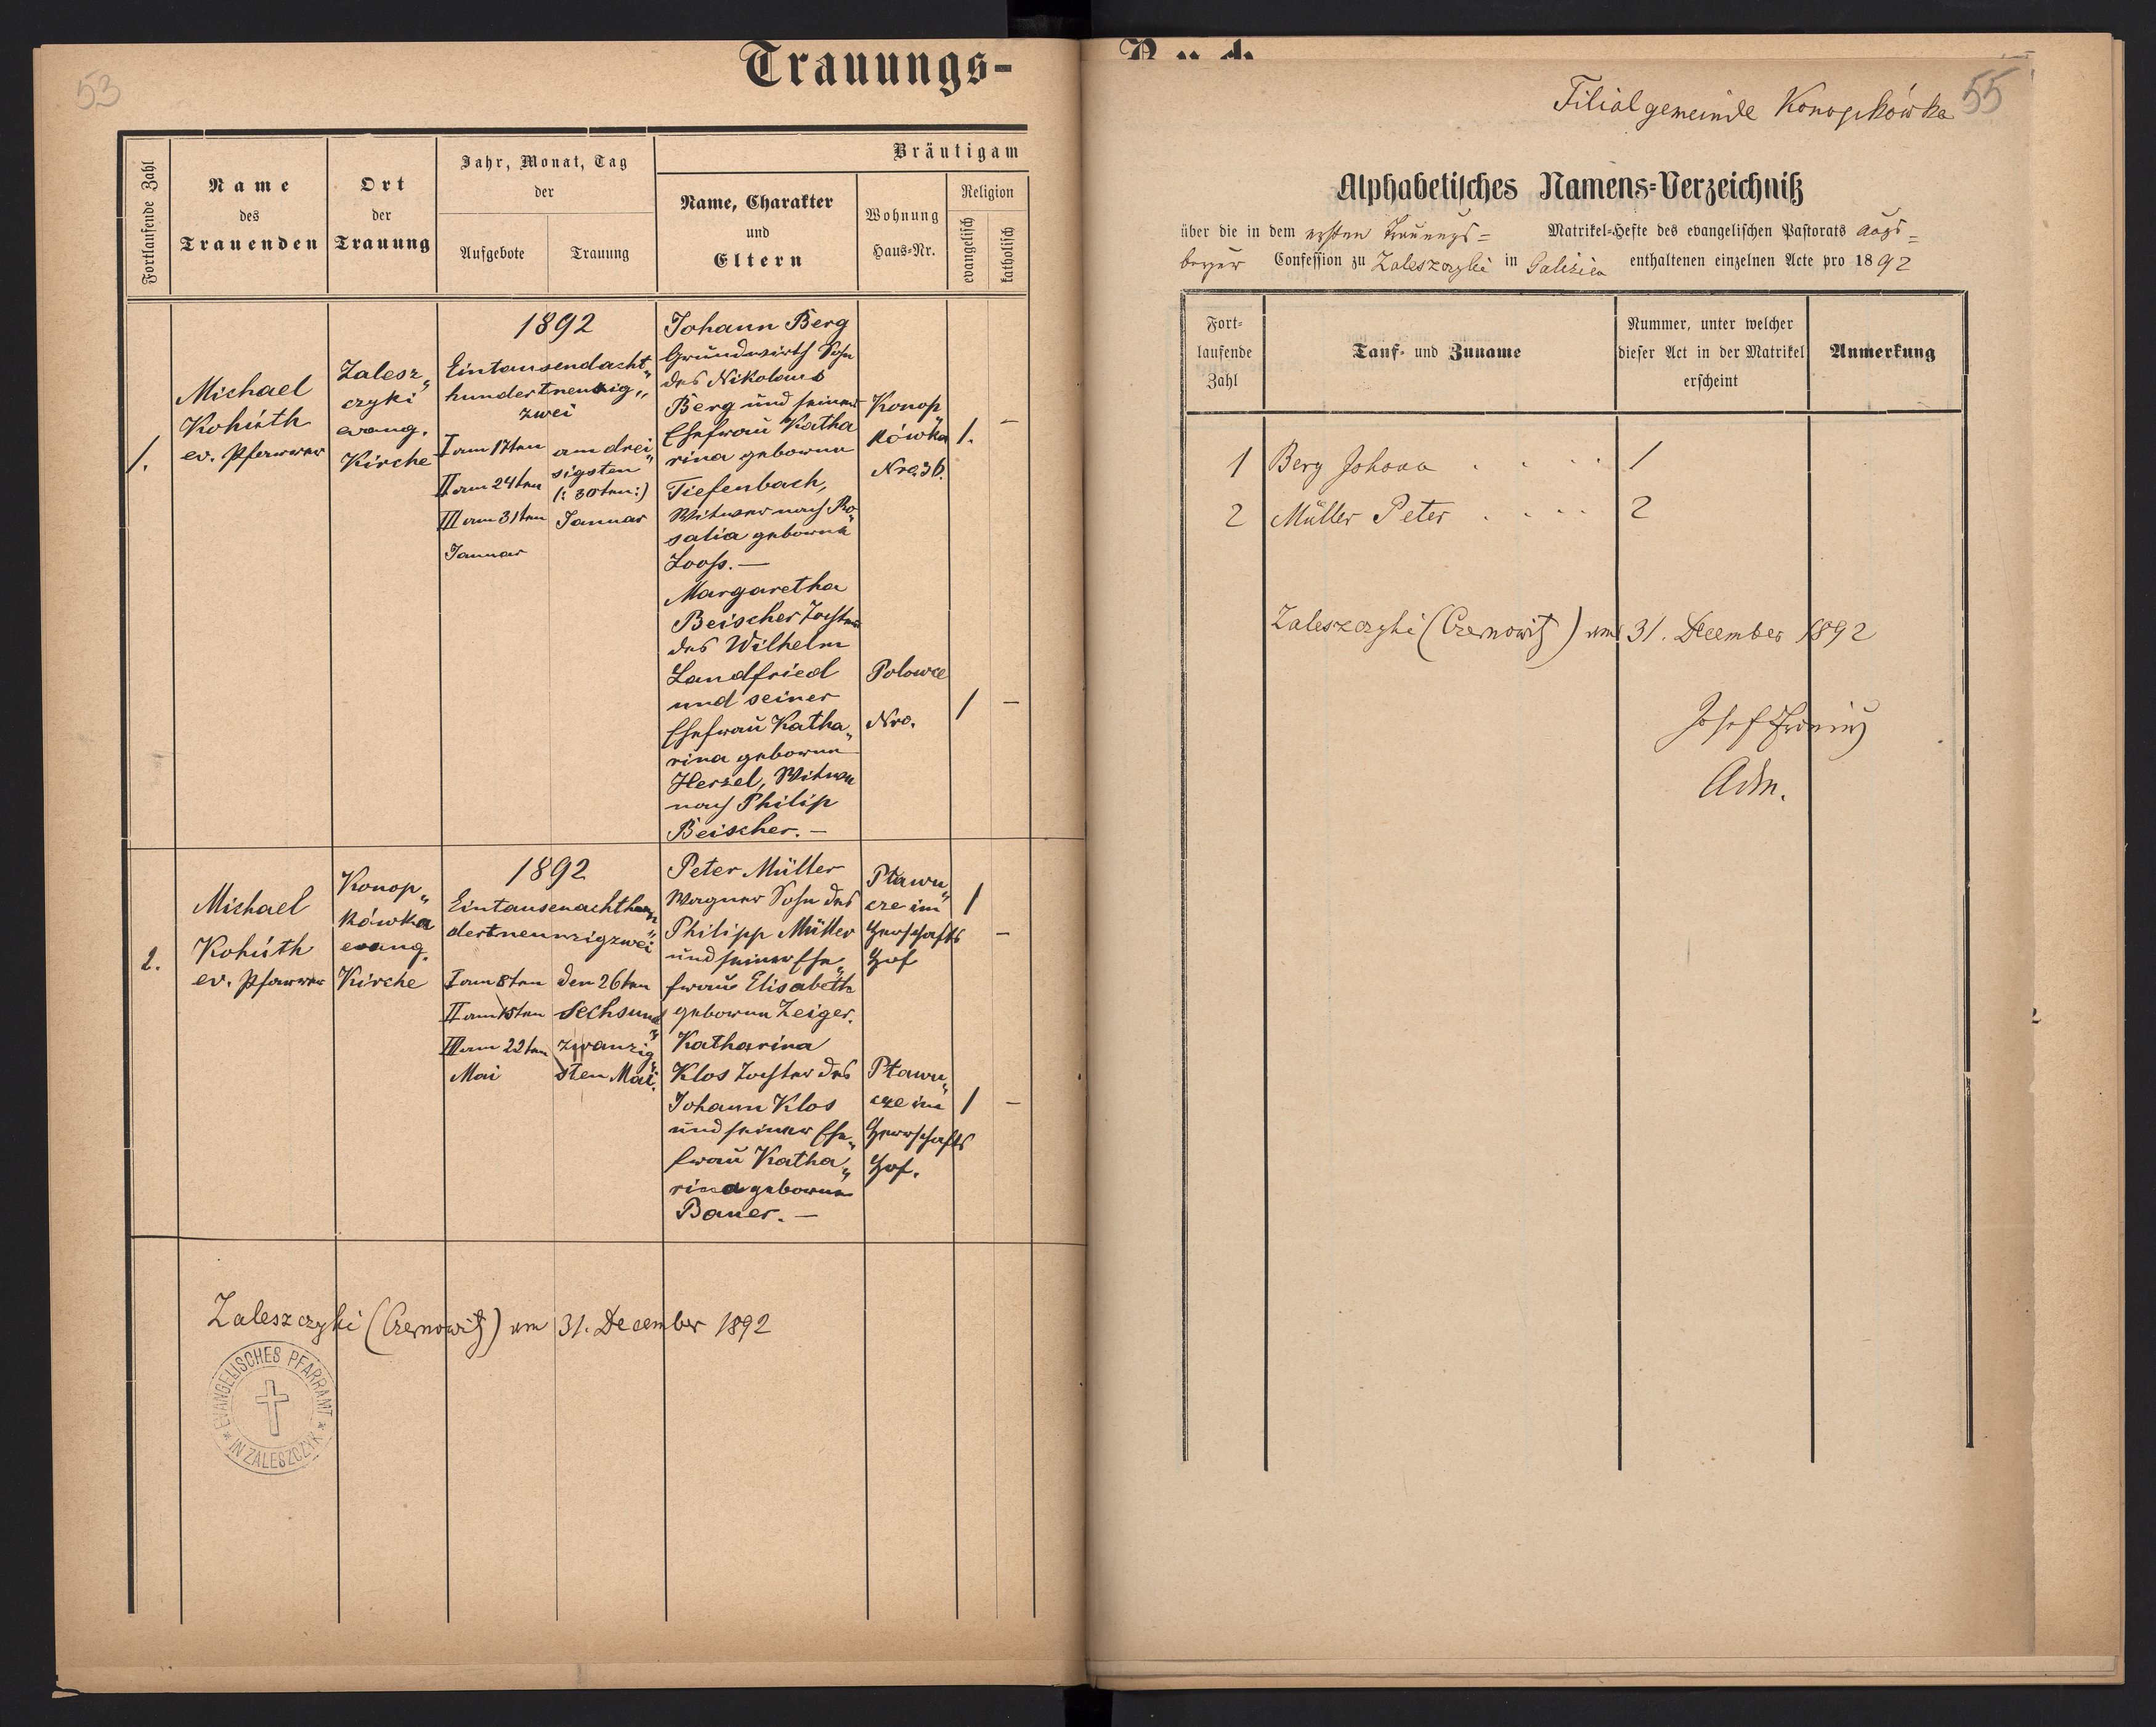 53
Trauungs-
Fortlaufende Zahl
Name
des
Trauenden
Ort
der
Trauung
Jahr, Monat, Tag
der
Aufgebote
Trauung
Bräutigam
Name, Charakter
und
Eltern
Wohnung
Haus-Nr.
Religion
evangelisch
katholisch
1.
Michael
Kohúth
ev. Pfarrer
Zalesz„
czyki
evang.
Kirche
1892
Eintausendacht„
hundertneunzig„
zwei
I am 17ten
II am 24ten
III am 31ten
Januar
am drei„
sigsten
(: 30ten :)
Januar
Johann Berg
Grundwirth Sohn
des Nikolaus
Berg und seiner
Ehefrau Katha
rina geborene
Tiefenbach,
Witwer nach Ro„
salia geborene
Looß. —
Margaretha
Beischer Tochter
des Wilhelm
Landfried
und seiner
Ehefrau Katha„
rina geborene
Herzel, Witwe
nach Philip
Beischer. —
Konop„
kówka
Nro 36.
1.
-
Polowce
Nro.
1
-
2.
Michael
Kohúth
ev. Pfarrer
Konop„
kówka
evang.
Kirche
1892
Eintausenachthun„
dertneunzigzwei
I am 8ten
II am 15ten
III am 22ten
Mai
den 26ten
Sechsund„
zwanzig„
sten Mai.
Peter Müller
Wagner Sohn des
Philipp Müller
und seiner Ehe„
frau Elisabeth
geborene Zeiger.
Katharina
Klos Tochter des
Johann Klos
und seiner Ehe„
frau Katha„
rina geborene
Bauer. —
Ptawu„
cze im
Herrschafts
Hof
1
-
Ptawu„
cze im
Herrschafts
Hof.
1
-
Zaleszczyki (Czernowitz) am 31. December 1892
EVANGELISCHES PFARRAMT
* IN ZALESZCZYK *
55
Filialgemeinde Konopkówka
Alphabetisches Namens-Verzeichniß
über die in dem ersten Trauungs= Matrikel-Hefte des evangelischen Pastorats Augs=
burger Confession zu Zaleszczyki in Galizien enthaltenen einzelnen Acte pro 1892
Fort-
laufende
Zahl
Tauf- und Zuname
Nummer, unter welcher
dieser Act in der Matrikel
erscheint
Anmerkung
1 Berg Johann . . . . 1
2 Müller Peter . . . . 2
Zaleszczyki (Czernowitz) am 31. December 1892
Josef
Adm.